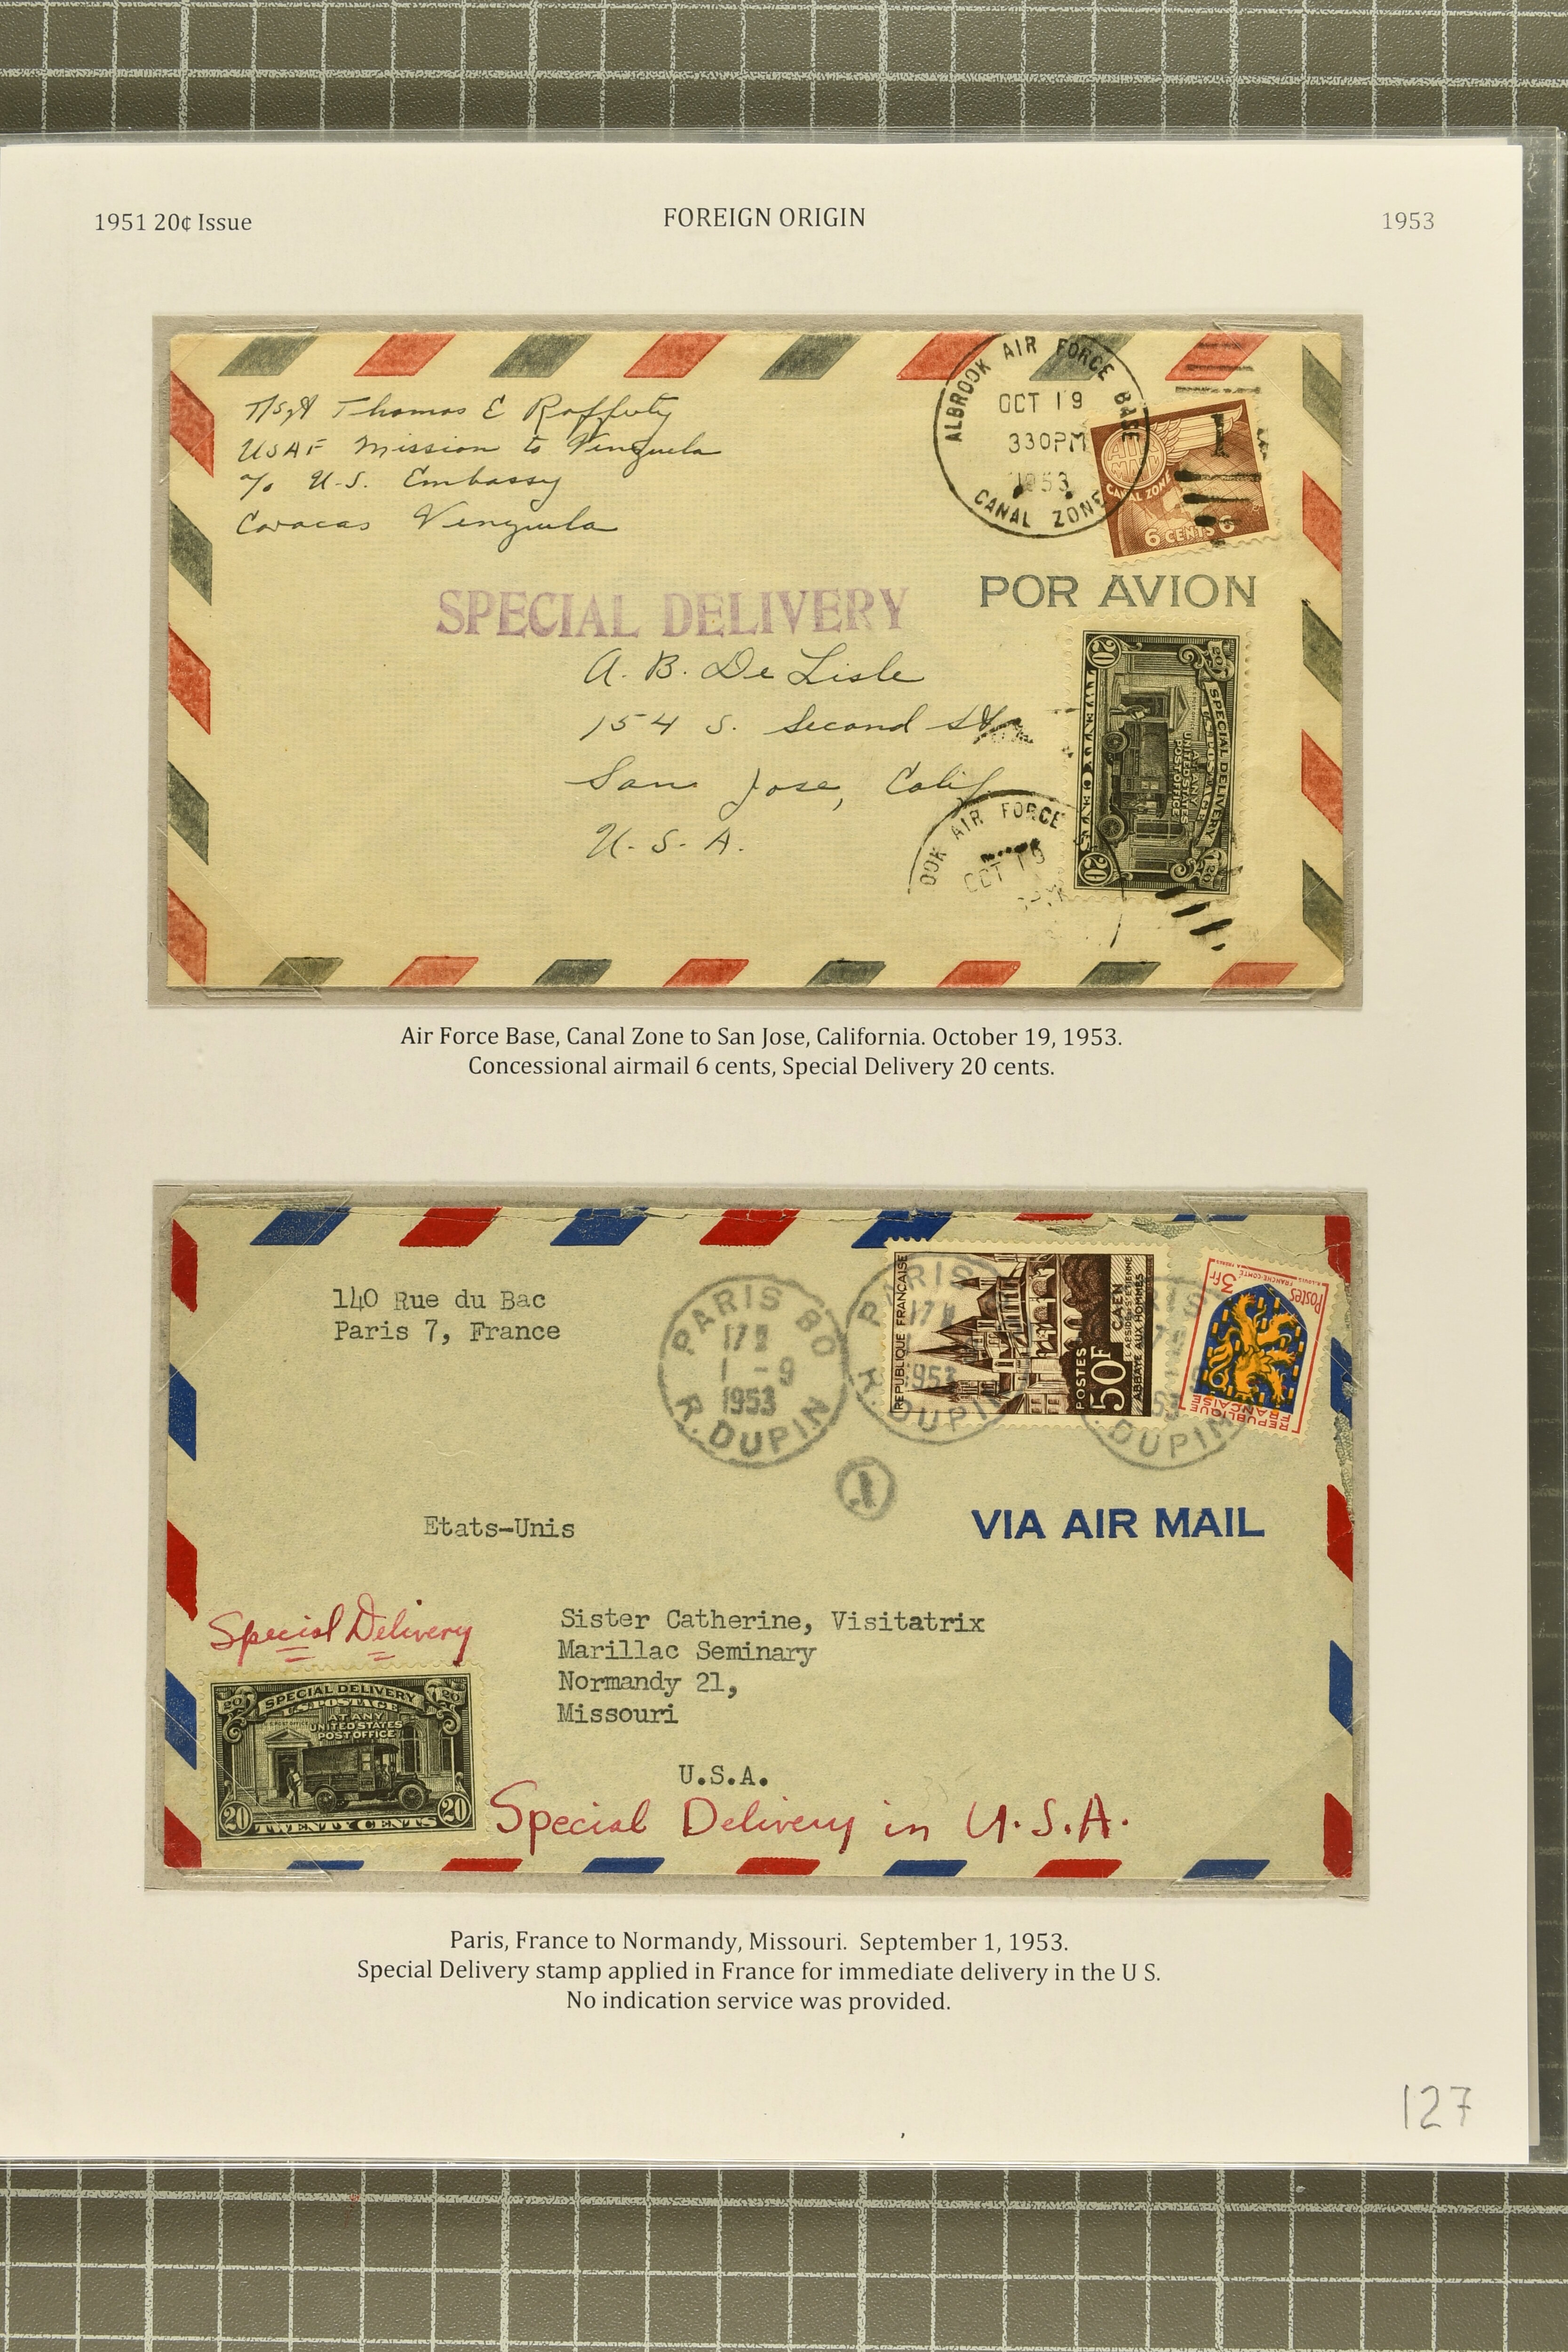 1951 20¢ Issue
FOREIGN ORIGIN
1953
T/Sgt Thomas E Rafferty
USAF Mission to Venzuela
c/o U.S. Embassy
Caracas Venzuela
ALBROOK AIR FORCE BASE
OCT 19
330PM
1953
CANAL ZONE
1
AIR MAIL
CANAL ZONE
6 CENTS 6
SPECIAL DELIVERY
POR AVION
A. B. De Lisle
154 S. Second St.
San Jose, Calif
U. S. A.
20 20
SPECIAL DELIVERY
U.S. POSTAGE
AT ANY
UNITED STATES
POST OFFICE
20 20
OOK AIR FORCE
OCT 19
Air Force Base, Canal Zone to San Jose, California. October 19, 1953.
Concessional airmail 6 cents, Special Delivery 20 cents.
140 Rue du Bac
Paris 7, France
PARIS 80
17H
1 -9
1953
R. DUPIN
PARIS
17H
1953
R. DUPIN
REPUBLIQUE FRANÇAISE
POSTES
50F
CAEN
ABBAYE AUX HOMMES
DUPIN
3fr
FRANCHE-COMTÉ
Postes
REPUBLIQUE
FRANÇAISE
Etats-Unis
VIA AIR MAIL
Special Delivery
Sister Catherine, Visitatrix
Marillac Seminary
Normandy 21,
Missouri
U.S.A.
20 20
SPECIAL DELIVERY
U.S. POSTAGE
AT ANY
UNITED STATES
POST OFFICE
20 20
TWENTY CENTS
Special Delivery in U.S.A.
Paris, France to Normandy, Missouri. September 1, 1953.
Special Delivery stamp applied in France for immediate delivery in the U S.
No indication service was provided.
127